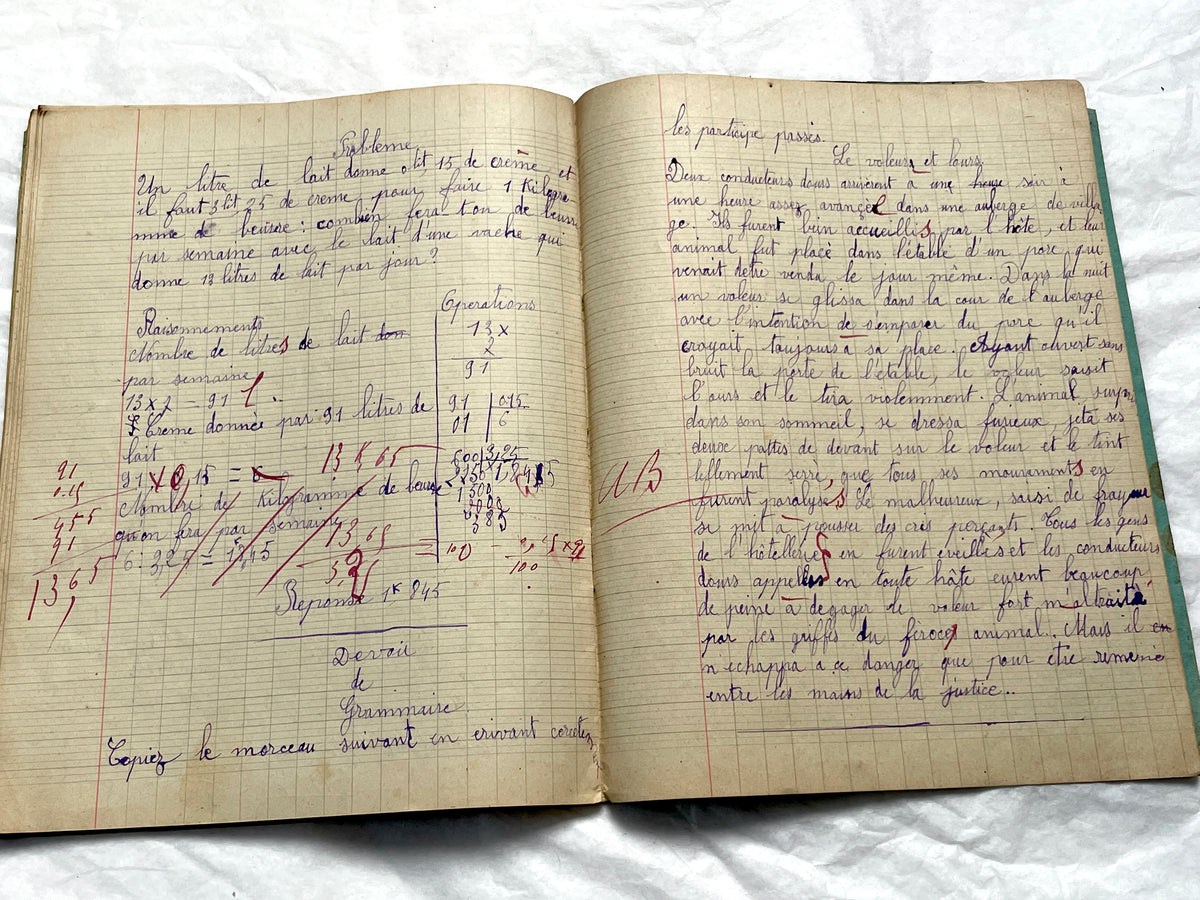 Probleme
Un litre de lait donne 0 lit, 15 de crème et
il faut 3 lit, 25 de creme pour faire 1 Kilogra-
mme de beurre : combien fera ton de beurre
par semaine avec le lait d'une vache qui
donne 13 litres de lait par jour ?
Raisonnements
Nombre de litres de lait don
par semaine
13 x 7 = 91 l
Creme donnée par 91 litres de
lait
91 x 0,15 = 6
13,65
Nombre de Kilogramme de beurre
qu'on fera par semaine
6 : 3,25 = 1,845
Reponse 1k 845
Operations
13 x
7
91
91 | 0.15
01 | 6
600 | 3,25
1500
2000
91
0.15
455
91
13,65
13,65
100
Devoir
de
Grammaire
Copiez le morceau suivant en erivant corectem
les participe passés.
Le voleurs et lours.
Deux conducteurs dours arrivèrent à une heure soir à
une heure assez avancée dans une auberge de villa
ge. Ils furent bien accueillis par l'hôte, et leur
animal fut placè dans l'étable d'un porc, qui
venait detre vendu le jour même. Dans la nuit
un voleur se glissa dans la cour de l'auberge
avec l'intention de s'emparer du porc qu'il
croyait toujours à sa place. Ayant ouvert sans
bruit la porte de l'étable, le voleur saisit
l'ours et le tira violemment. L'animal surpris
dans son sommeil, se dressa furieux, jeta ses
deux pattes de devant sur le voleur et le tint
tellement serré, que tous ses mouvaments en
furent paralysés. Le malheureux, saisi de frayeur
se mit à pousser des cris perçants. Tous les gens
de l'hôtellerie en furent éveillés et les conducteurs
dours appelés en toute hâte eurent beaucoup
de peine à degager le voleur fort maltraité
par les griffes du féroce animal. Mais il en
n echappa a ce danger que pour être remené
entre les mains de la justice..
AB